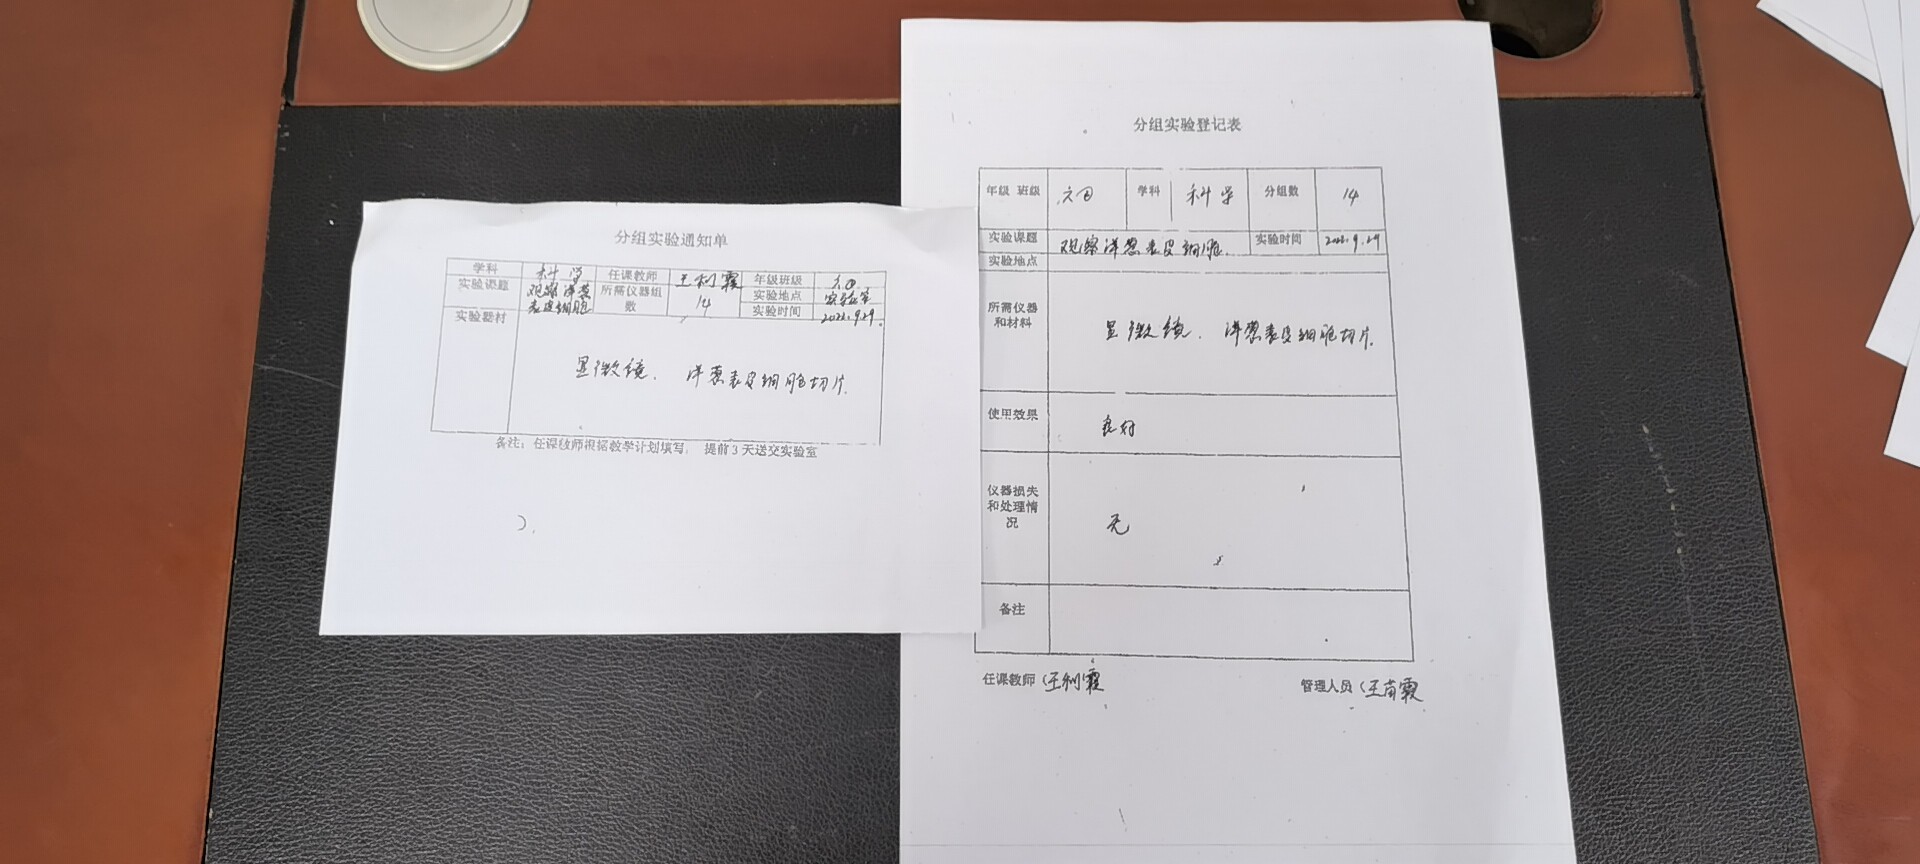 分组实验通知单
学科 科学 任课教师 王利霞 年级班级 六四
实验课题 观察洋葱表皮细胞 所需仪器组数 14 实验地点 实验室
实验时间 2022.9.29.
实验器材 显微镜. 洋葱表皮细胞切片.
备注：任课教师根据教学计划填写， 提前3天送交实验室
分组实验登记表
年级 班级 六四 学科 科学 分组数 14
实验课题 观察洋葱表皮细胞. 实验时间 2022.9.29
实验地点
所需仪器和材料 显微镜. 洋葱表皮细胞切片.
使用效果 良好
仪器损失和处理情况 无
备注
任课教师 王利霞 管理人员